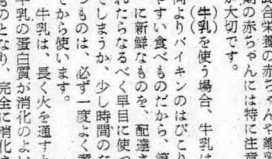 の赤ちゃん
の赤ちゃんには特に注意
が大切です。
（牛乳）を使う場合、牛乳
何よりバイキンのはびこり
やすい食べものだから、第
に新鮮なものを、配達さ
れたらなるべく早目に使っ
てしまうか、少し時間のた
ものは、必ず一度よく煮
てから使います。
牛乳は、長く火を通すと
牛乳の蛋白質が消化のよい
ものとなり、完全に消化さ